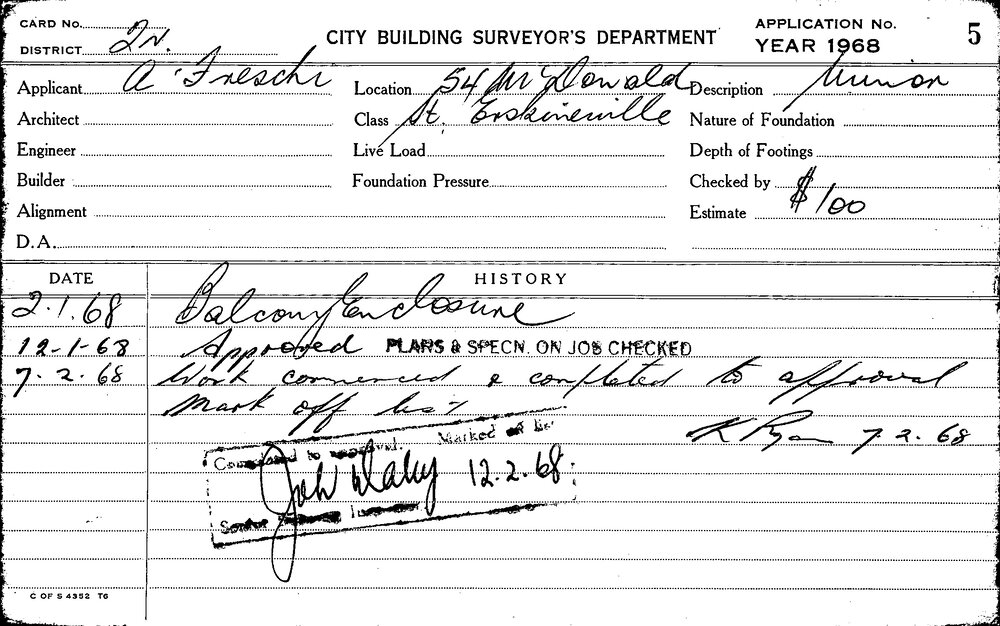 CARD No.
DISTRICT 2N.
CITY BUILDING SURVEYOR'S DEPARTMENT
APPLICATION No.
YEAR 1968
5
Applicant A. Freschi
Location 54 McDonald
Description Minor
Architect
Class St. Erskineville
Nature of Foundation
Engineer
Live Load
Depth of Footings
Builder
Foundation Pressure
Checked by
Alignment
Estimate $100
D.A.
DATE HISTORY
2.1.68 Balcony Enclosure
12-1-68 Approved PLANS & SPECN. ON JOB CHECKED
7.2.68 Work commenced & completed to approval
Mark off list
K Ryan 7.2.68
Completed to approval. Marked off list
12.2.68
Senior Inspector
C OF S 4352 TG